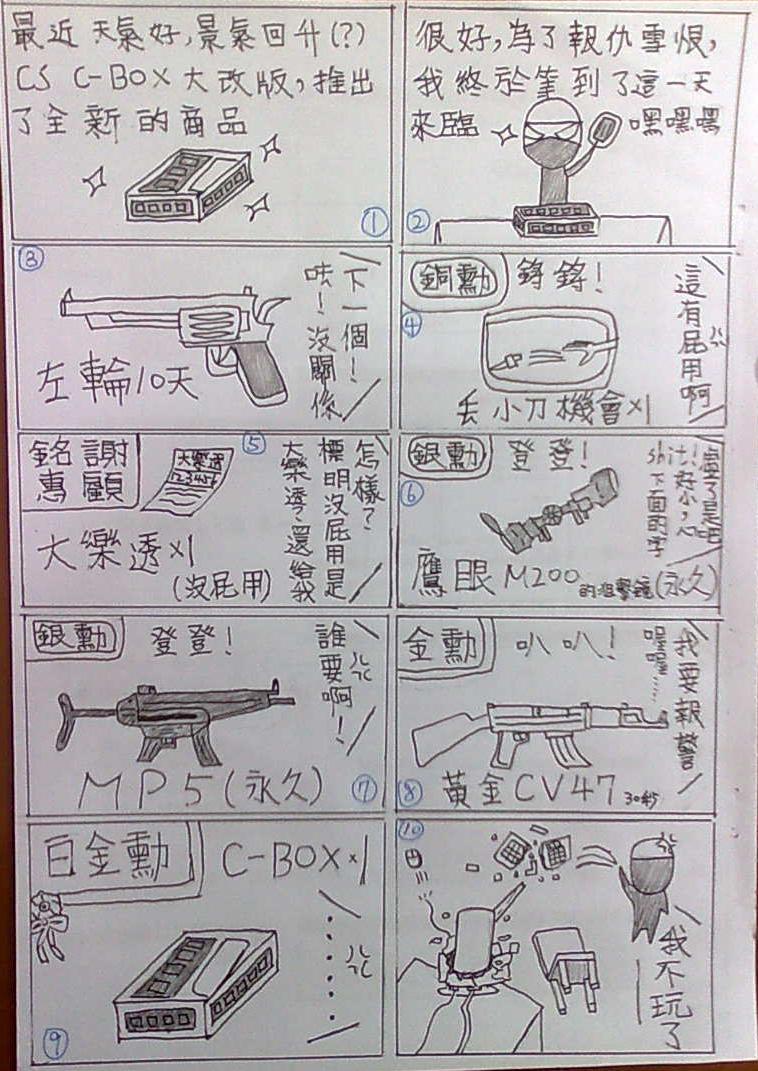 最近天氣好,景氣回升(?)
CS C-BOX 大改版,推出
了全新的商品
①
很好,為了報仇雪恨,
我終於等到了這一天
來臨
嘿嘿嘿
②
③
下一個!
呿!沒關係
左輪10天
銅勳
鏘鏘!
④
這有屁用啊
丟小刀機會×1
銘謝
惠顧
⑤
大樂透
123456
怎樣?
標明沒屁用是
大樂透、還給我
大樂透×1
(沒屁用)
銀勳
登登!
⑥
shit!好小,心
下面的字
鷹眼M200的狙擊鏡(永久)
銀勳
登登!
誰要啊!
MP5(永久)
⑦
金勳
叭叭!
我要報警
喔喔……
⑧
黃金CV47 30秒
白金勳
C-BOX×1
⑨
⑩
我不玩了